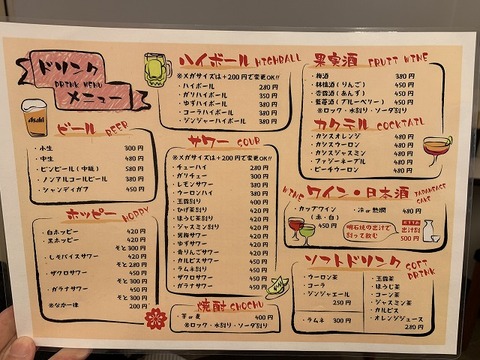 ドリンク
DRINK MENU
メニュー
Asahi
ビール BEER
・小生 300円
・中生 480円
・ビンビール(中瓶) 580円
・ノンアルコールビール 380円
・シャンディガフ 450円
ホッピー HOPPY
・白ホッピー 420円
・黒ホッピー 420円
そと300円
・しそバイスサワー 420円
そと280円
・ザクロサワー 450円
・ガラナサワー 450円
200円
ハイボール HIGHBALL
※メガサイズは+200円で変更OK!!
・ハイボール 280円
・ガリハイボール 350円
・ゆずハイボール 380円
・コーラハイボール 380円
・ジンジャーハイボール 380円
サワー SOUR
※メガサイズは+200円で変更OK!!
・チューハイ 280円
・ガリチュー 300円
・レモンサワー 380円
・ウーロンハイ 380円
・玉露割り 420円
・ひげ茶割り 420円
・ほうじ茶割り 420円
・ジャスミン割り 420円
・ゆずサワー 420円
・青りんごサワー 420円
・カルピスサワー 450円
・ラムネ割り 450円
・ザクロサワー 450円
・ガラナサワー 450円
焼酎 SHOCHU
・芋or麦 400円
※ロック・水割り・ソーダ割り
果実酒 FRUIT WINE
・梅酒 380円
・林檎酒(りんご) 450円
・杏露酒(あんず) 450円
・藍苺酒(ブルーベリー) 450円
※ロック・水割り・ソーダ割り
カクテル COCKTAIL
・カシスオレンジ 480円
・カシスウーロン 480円
・カシスジャスミン 480円
・ファジーネーブル 480円
・ピーチウーロン 480円
WINE ワイン・日本酒 JAPANESE SAKE
・カップワイン
(赤・白)
450円
・冷or熱燗 480円
明石焼の出汁で
割って飲む
おすすめ
出汁割
500円
ソフトドリンク SOFT DRINK
・ウーロン茶
・コーラ
・ジンジャエール
250円
・ラムネ 300円
・玉露茶
・ほうじ茶
・コーン茶
・ジャスミン茶
・カルピス
・オレンジジュース
280円